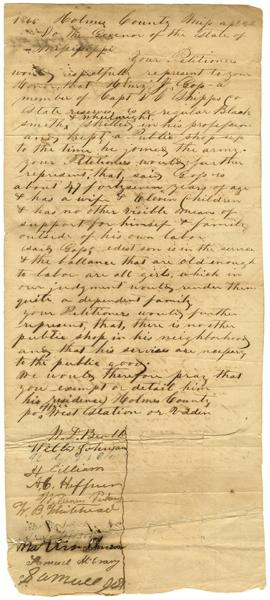 1865 Holmes County Miss
To the Governor of the State of
Mississippi
Your Petitioners
would respectfully represent to your
Honor, that Henry J. Goss a
member of Capt Shipps Co
State reserves is a regular Black
smith & Wheelright
& skilled in his profession
and kept a Public shop up
to the time he joined the army.
your Petitioners would further
represent, that said Goss is
about 47 fortyseven years of age
& has a wife & Eleven Children
& has no other visible means of
support for himself & family
outside of his own labor
(said Goss edest son is in the service
& the ballance that are old enough
to labor are all girls, which in
our judgment would render them
quite a dependent family
your Petitioners would further
represent, that, there is no other
public shop in his neighborhood
and that his services are necessary
to the public good.
We would therefore pray that
you exempt or detail him
his residence Holmes County
West Station or Vaiden
Willis Johnson
H Gilliam
A. C. Heffner
W. B. Whitehead
Samuel